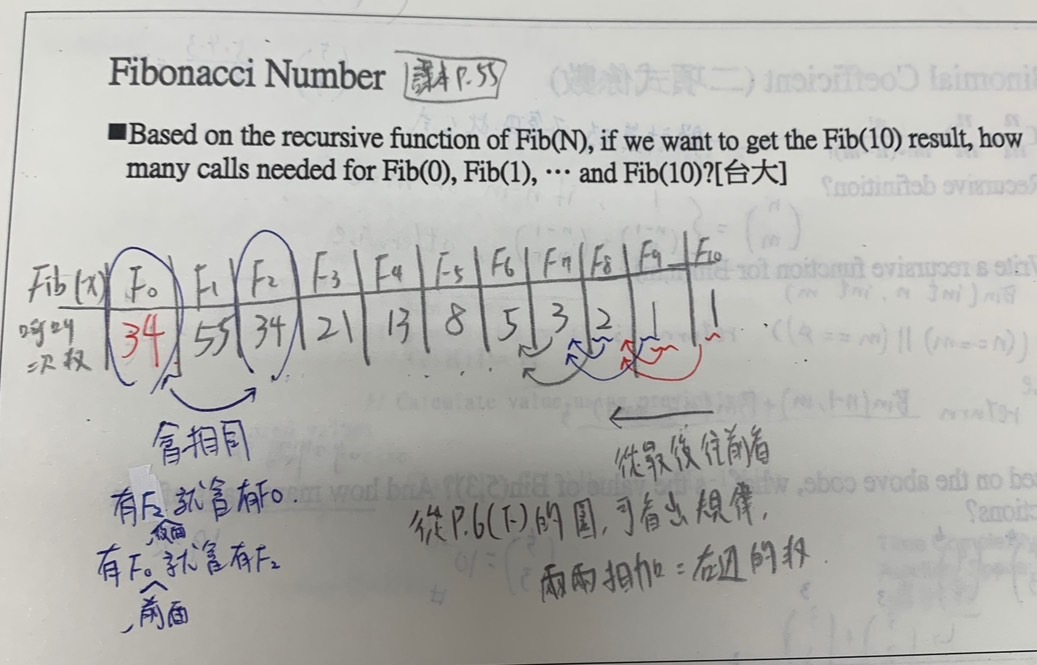 Fibonacci Number 課本P.55
■Based on the recursive function of Fib(N), if we want to get the Fib(10) result, how
many calls needed for Fib(0), Fib(1), ⋯ and Fib(10)?[台大]
Fib(x) F0 F1 F2 F3 F4 F5 F6 F7 F8 F9 F10
呼叫次數 34 55 34 21 13 8 5 3 2 1 1
會相同
從最後往前看
有F2就會有F0.
後面
從P.6(下)的圖,可看出規律,
有F0就會有F2
前面
兩兩相加=左边的数.